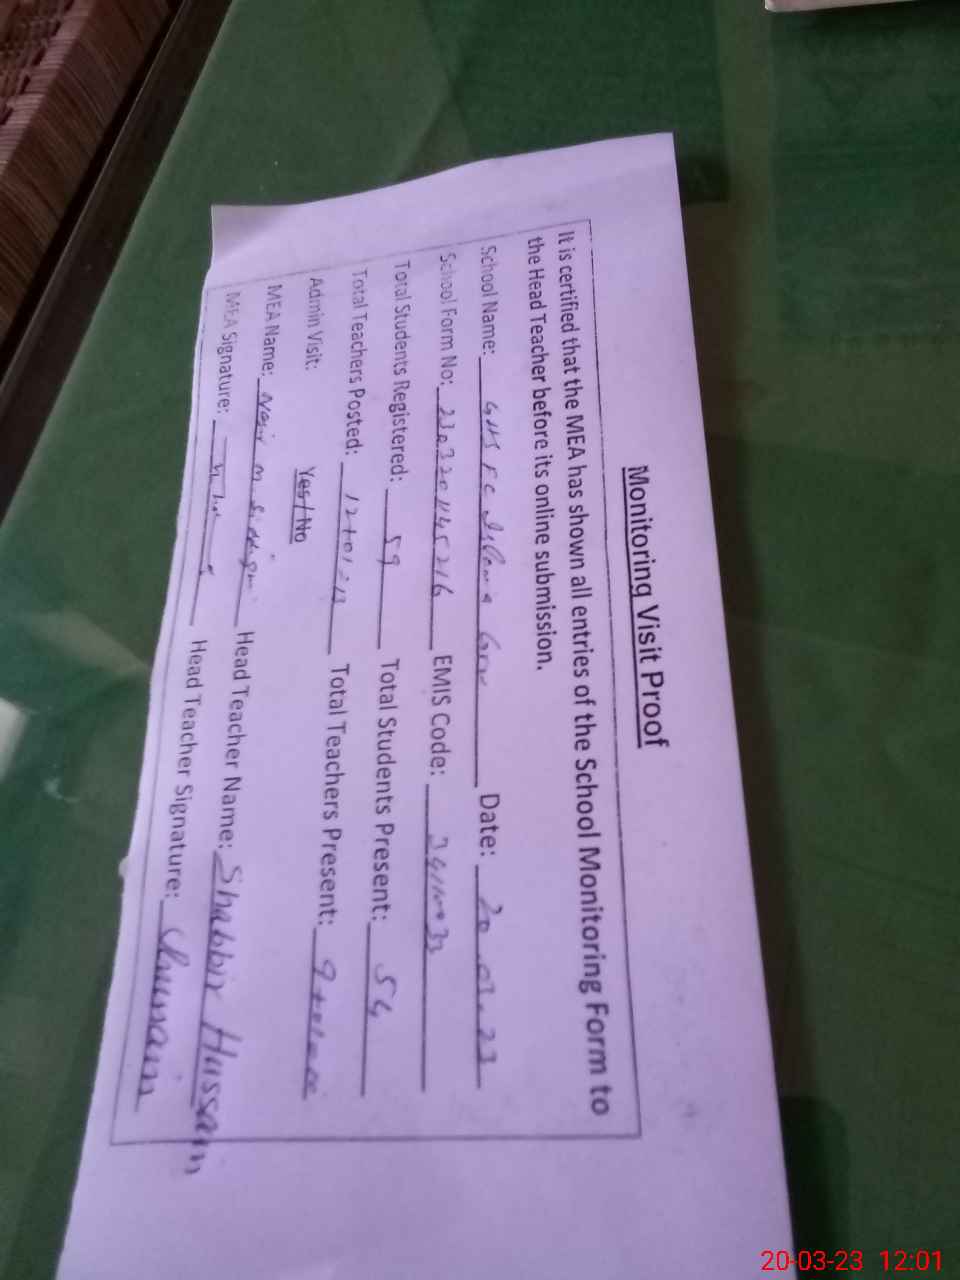 Monitoring Visit Proof
It is certified that the MEA has shown all entries of the School Monitoring Form to
the Head Teacher before its online submission.
School Name: GHS Date: 20.03.23
School Form No: EMIS Code:
Total Students Registered: 59 Total Students Present: 54
Total Teachers Posted: 12+01=13 Total Teachers Present:
Admin Visit: Yes / No
MEA Name: Head Teacher Name: Shabbir Hussain
MEA Signature: Head Teacher Signature:
20-03-23 12:01